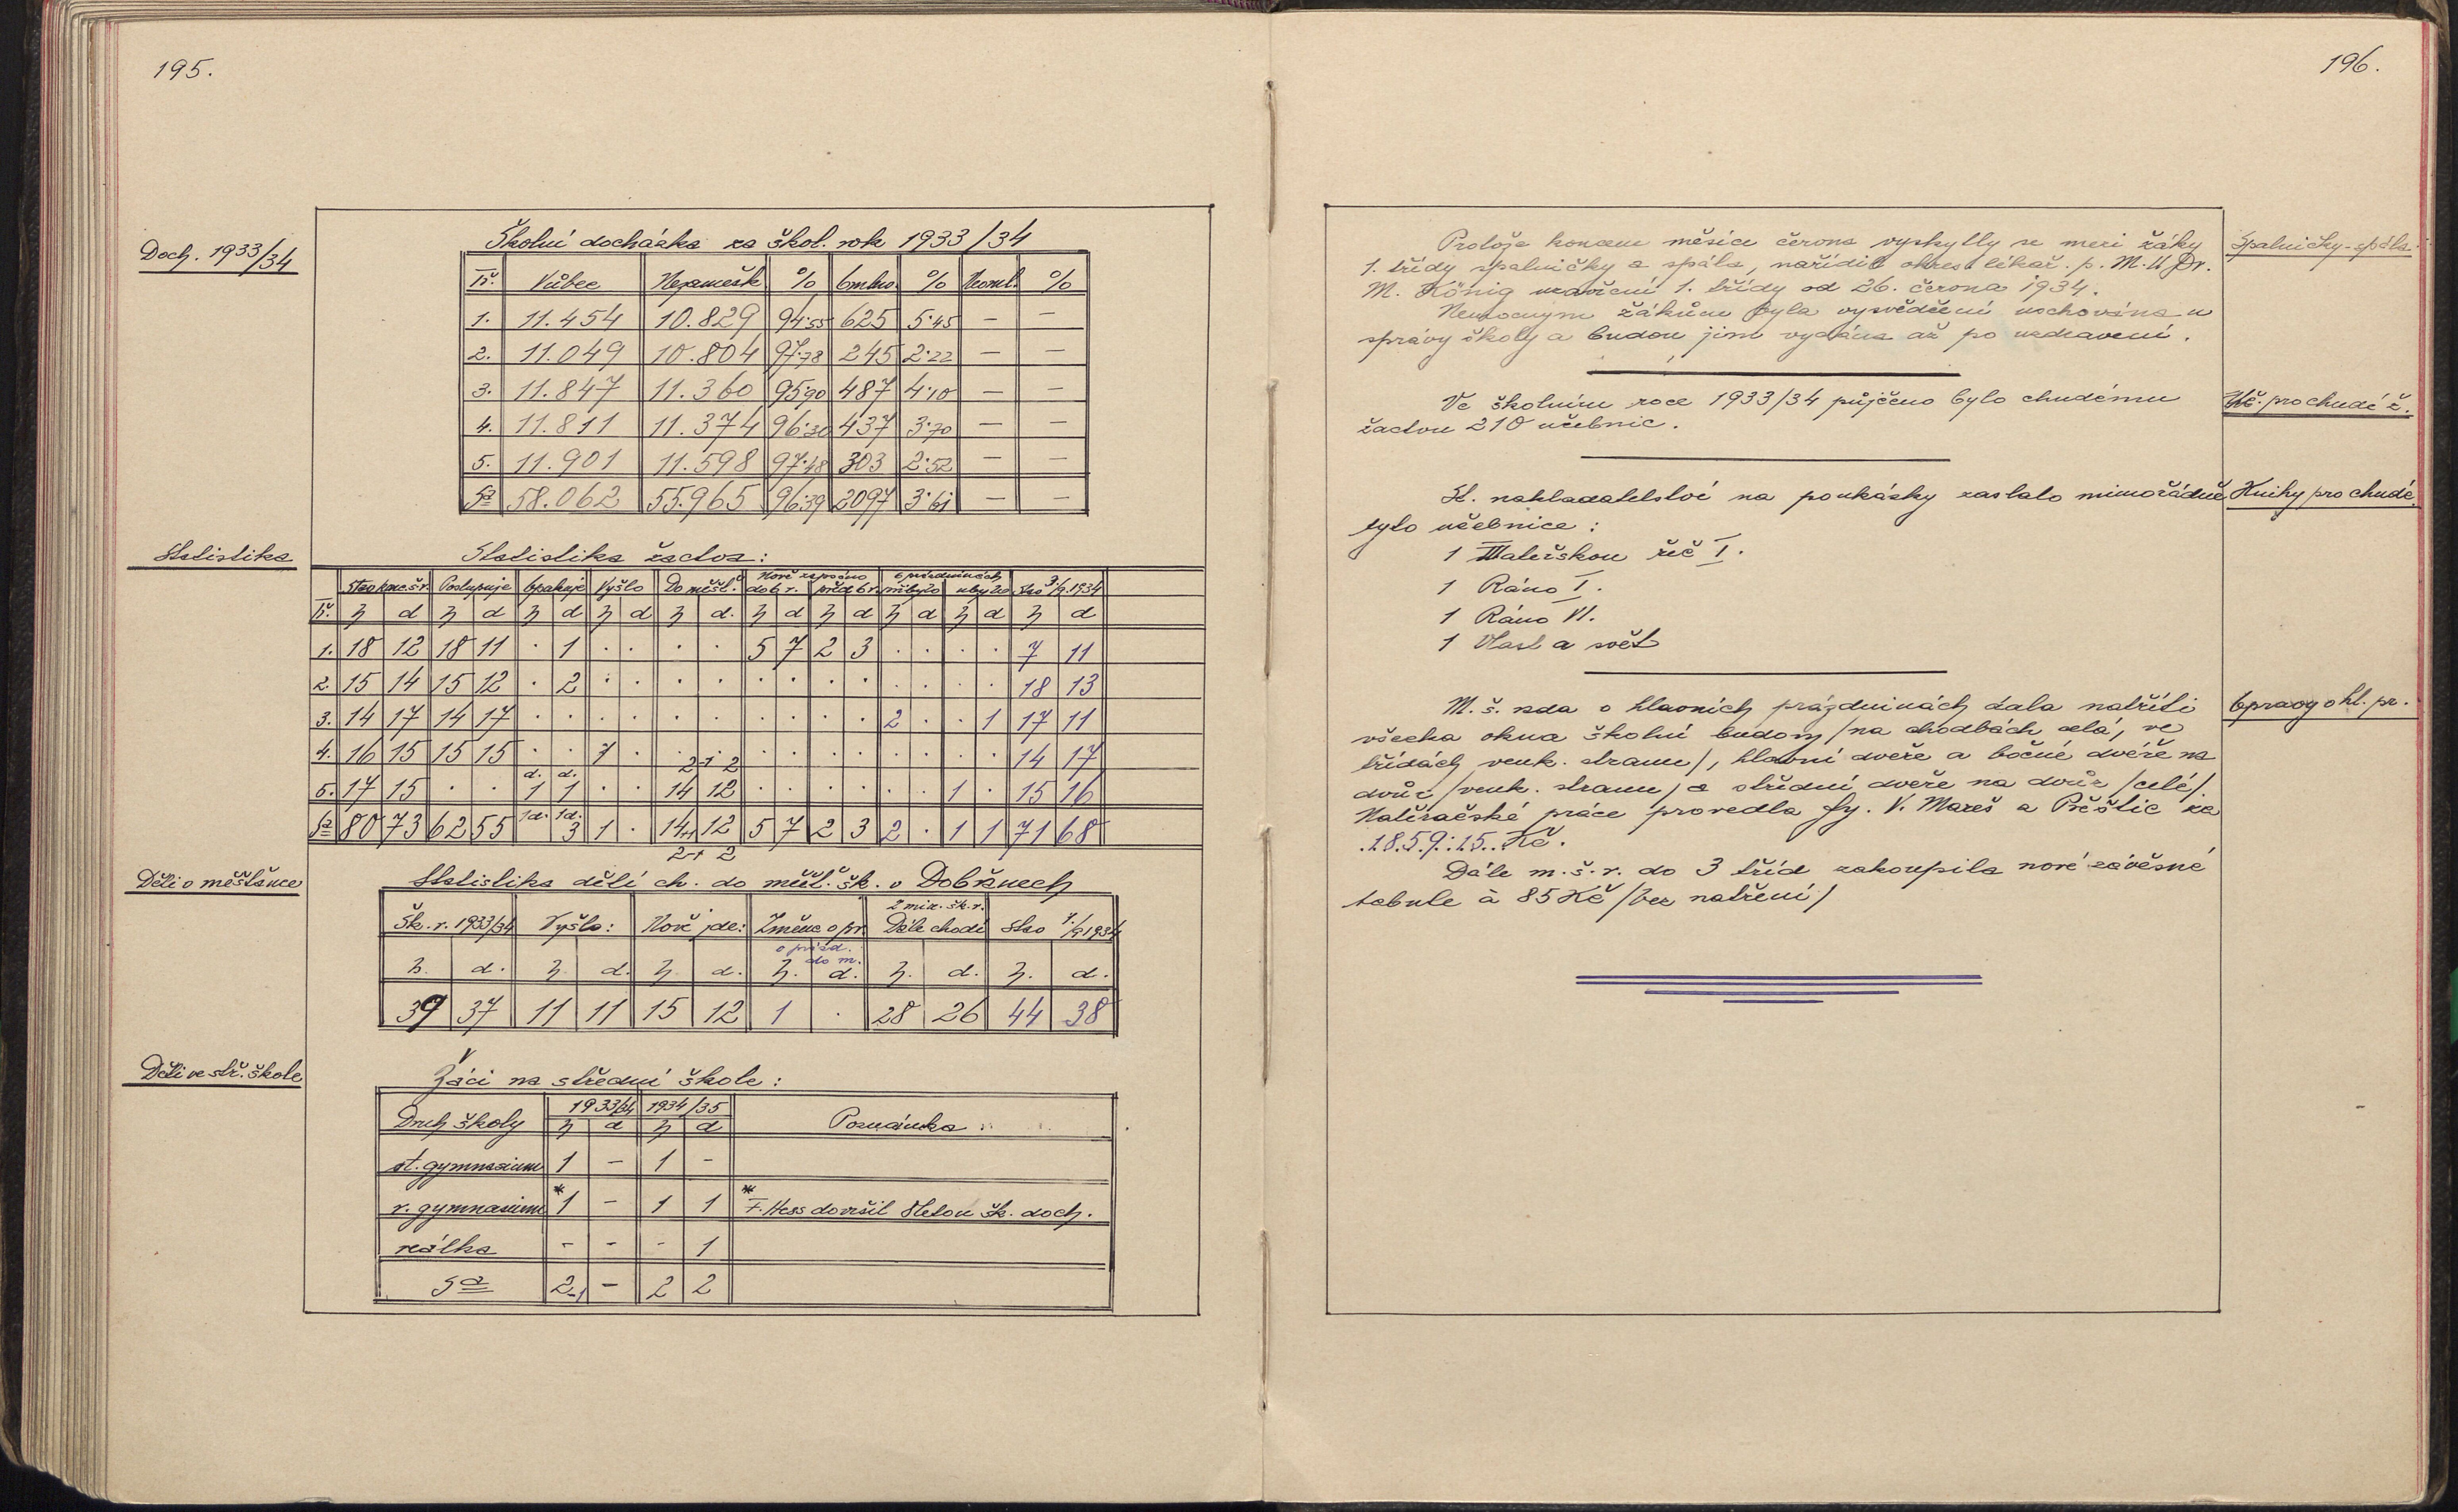 195.
Doch. 1933/34
Školní docházka za škol. rok 1933/34
Tř. Vůbec Nezamešk % Omluv. % Neoml. %
1. 11.454 10.829 94·55 625 5·45 — —
2. 11.049 10.804 97·78 245 2·22 — —
3. 11.847 11.360 95·90 487 4·10 — —
4. 11.811 11.374 96·30 437 3·70 — —
5. 11.901 11.598 97·48 303 2·52 — —
Sa 58.062 55.965 96·39 2097 3·61 — —
Statistika
Statistika žactva:
Nově zapsáno o prázdninách
Stav konc. š. r. Postupuje Opakuje Vyšlo Do měšť. do 6 r. před 6 r. přibylo ubylo Stav 1/9. 1934
Tř. h d h d h d h d h d. h d h d h d h d h d
1. 18 12 18 11 · 1 · · · · 5 7 2 3 · · · · 7 11
2. 15 14 15 12 · 2 · · · · · · · · · · · · 18 13
3. 14 17 14 17 · · · · · · · · · · 2 · · 1 17 11
4. 16 15 15 15 · · 1 · · · · · · · · · · · 14 17
d. d. 2+ 2
5. 17 15 · · 1 1 · · 14 12 · · · · · · 1 · 15 16
1d. 1d.
Sa 80 73 62 55 3 1 · 14+1 12 5 7 2 3 2 · 1 1 71 68
2+ 2
Děti v měšťance
Statistika dětí ch. do měšť. šk. v Dobřanech
z min. šk. r.
Šk. r. 1933/34 Vyšlo: Nově jde: Změna o pr. Dále chodí Stav 1./9 1934
o prázd.
do m.
h. d. h. d. h. d. h. d. h. d. h. d.
39 37 11 11 15 12 1 · 28 26 44 38
Děti ve stř. škole
Žáci na střední škole:
Druh školy 1933/34 1934/35 Poznámka:
h d h d
st. gymnasium 1 — 1 —
r. gymnasium *1 — 1 1 * F. Hess dovršil 8letou šk. doch.
reálka - - - 1
Sa 2-1 — 2 2
196.
Protože koncem měsíce června vyskytly se mezi žáky
1. třídy spalničky a spála, nařídil okres. lékař. p. M. U Dr.
M. König uzavření 1. třídy od 26. června 1934.
Nemocným žákům byla vysvědčení uschována u
správy školy a budou jim vydána až po uzdravení.
Spalničky-spála.
Ve školním roce 1933/34 půjčeno bylo chudému
žactvu 210 učebnic.
Uč. pro chudé ž.
St. nakladatelství na poukázky zaslalo mimořádně
tyto učebnice:
Knihy pro chudé.
1 Mateřskou řeč I.
1 Ráno I.
1 Ráno VI.
1 Vlast a svět
M. š. rada o hlavních prázdninách dala natříti
všecka okna školní budovy /na chodbách celá, ve
třídách venk. stranu/, hlavní dveře a bočné dvéře na
dvůr /venk. stranu/ a střední dveře na dvůr /celé/.
Natěračské práce provedla fy. V. Mareš z Přeštic za
.1.8.5.9.:15.. Kč.
Opravy o hl. pr.
Dále m. š. r. do 3 tříd zakoupila nové závěsné
tabule à 85 Kč /bez natření/